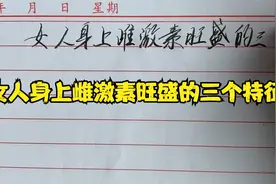 年 月 日 星期
女人身上雌激素旺盛的三
女人身上雌激素旺盛的三个特征